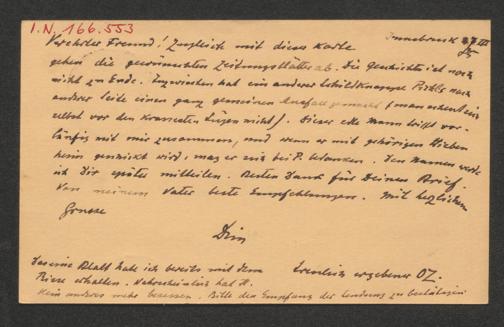 I.N. 166.553
Innsbruck
Verehrter Freund! Zugleich mit dieser Karte
gehen die gewünschten Zeitungsblätter ab. Die Geschichte ist noch
nicht zu Ende. Inzwischen hat ein anderer Schildknappe nach
anderer Seite einen ganz gemeinen Ausfall gemacht (man scheut sich
selbst vor den Lügen nicht). Dieser edle Mann wirkt vor-
läufig mit mir zusammen, und wenn er mit gehörigen Hieben
heim geschickt wird, mag er sich bei P. bedanken. Den Namen werde
ich Dir später mitteilen. Besten Dank für Deinen Brief.
Von meinem Vater beste Empfehlungen. Mit herzlichem
Grusse
Dein
ergebener OZ.
Das eine Blatt habe ich bereits mit dem
erhalten. Wahrscheinlich hat H.
kein anderes mehr besessen. Bitte den Empfang der Sendung zu bestätigen